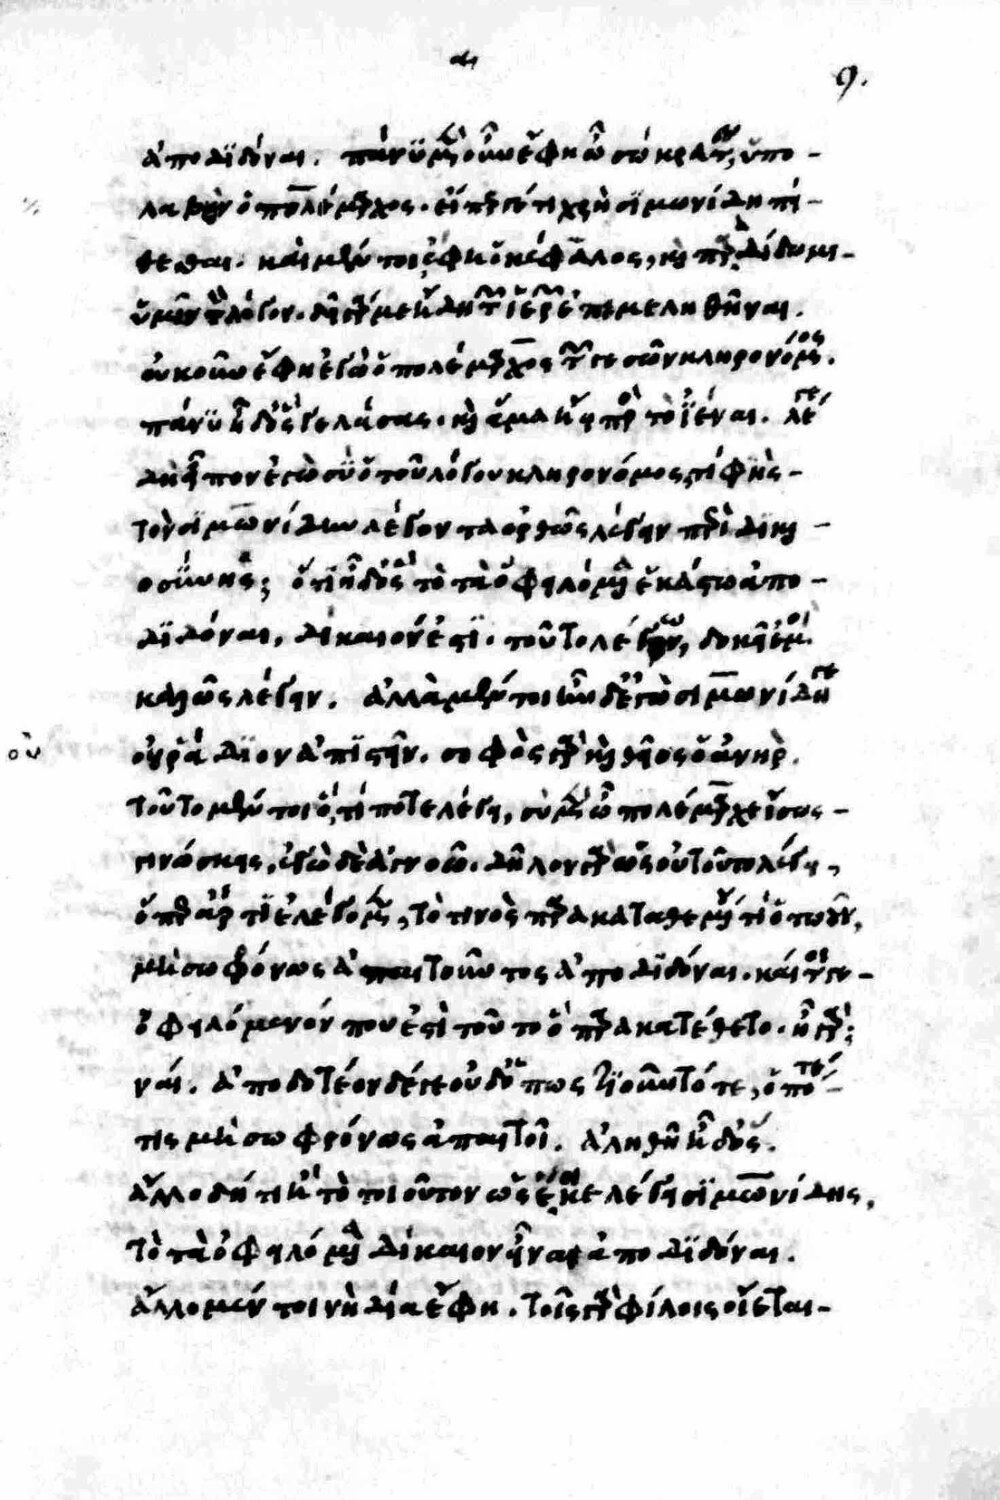 α
9.
ἀποδιδόναι. πάνυ μὲν οὖν ἔφη ὦ σώκρατες, ὑπο-
λαβὼν ὁ πολέμαρχος. εἴπερ γέ τι χρὴ σιμωνίδῃ πεί-
θεσθαι. καὶ μέντοι ἔφη ὁ κέφαλος, καὶ παραδίδωμι-
ὑμῖν τὸν λόγον. δεῖ γάρ με ἤδη τῶν ἱερῶν ἐπιμεληθῆναι.
οὐκοῦν ἔφη ἐγὼ ὁ πολέμαρχος τῶν γε σῶν κληρονόμος.
πάνυ γε ἦ δ' ὃς γελάσας. καὶ ἅμα ᾔει πρὸς τὰ ἱερά. λέγε
δὴ εἶπον ἐγὼ σὺ ὁ τοῦ λόγου κληρονόμος, τί φῂς-
τὸν σιμωνίδην λέγοντα ὀρθῶς λέγειν περὶ δικαι-
οσύνης; ὅτι ἦ δ' ὃς τὸ τὰ ὀφειλόμενα ἑκάστῳ ἀπο-
διδόναι, δίκαιόν ἐστι. τοῦτο λέγων, δοκεῖ ἐμοὶ
καλῶς λέγειν. ἀλλὰ μέντοι ἦν δ' ἐγὼ σιμωνίδῃ γε
οὐ ῥᾴδιον ἀπιστεῖν. σοφὸς γὰρ καὶ θεῖος ὁ ἀνήρ.
οὖν
τοῦτο μέντοι ὅ,τι ποτε λέγει, σὺ μὲν ὦ πολέμαρχε ἴσως-
γινώσκεις, ἐγὼ δὲ ἀγνοῶ. δῆλον γὰρ ὡς οὐ τοῦτο λέγει,
ὅπερ ἄρτι ἐλέγομεν, τό τινος παρακαταθεμένου τι ὁτῳοῦν,
μὴ σωφρόνως ἀπαιτοῦντος ἀποδιδόναι. καίτοι γε-
ὀφειλόμενόν που ἐστὶ τοῦτο ὃ παρακατέθετο. ἦ γάρ;
ναί. ἀποδοτέον δέ γε οὐδ' ὁπωστιοῦν τότε, ὁπότε-
τις μὴ σωφρόνως ἀπαιτοῖ. ἀληθῆ ἦ δ' ὅς.
ἄλλο δή τι ἢ τὸ τοιοῦτον ὡς ἔοικε λέγει σιμωνίδης,
τὸ τὰ ὀφειλόμενα δίκαιον εἶναι ἀποδιδόναι.
ἄλλο μέντοι νὴ δία ἔφη. τοῖς γὰρ φίλοις οἴεται-